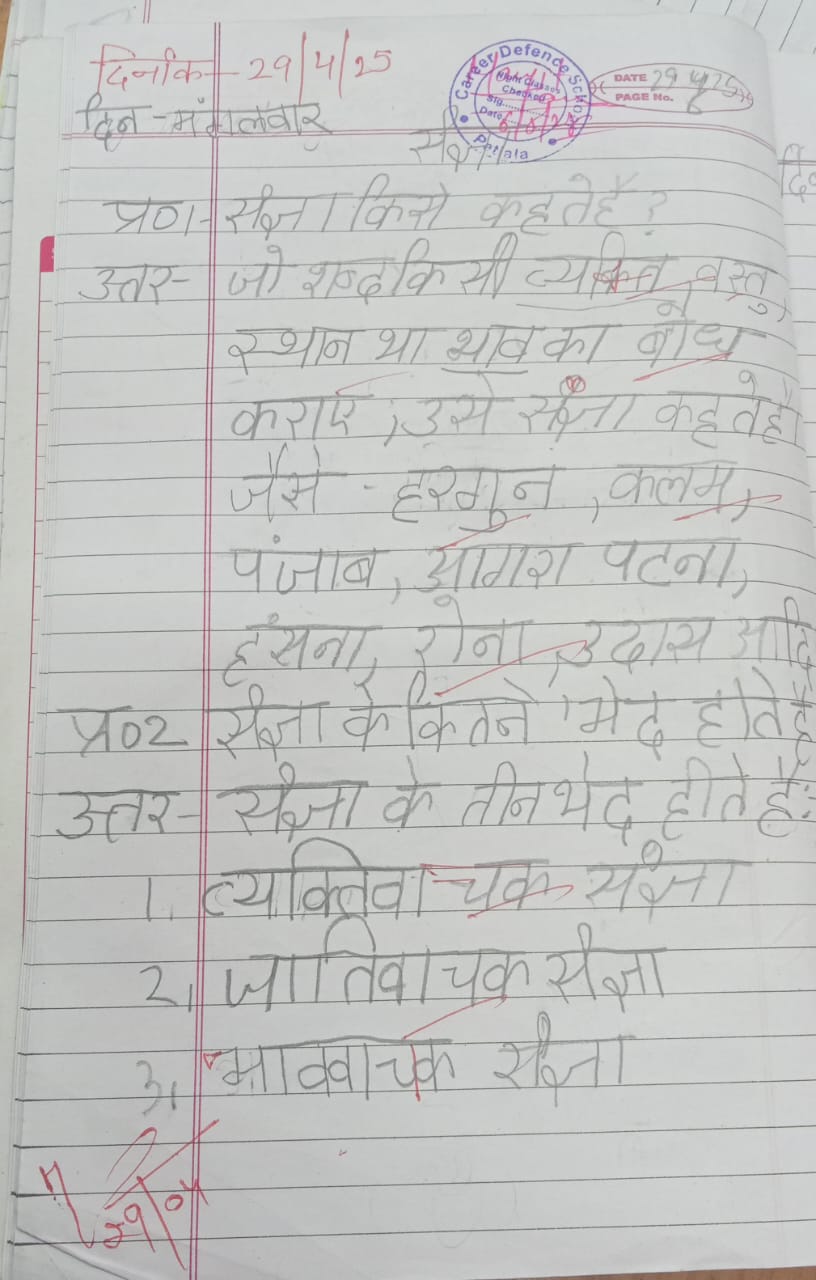 दिनांक- 29/4/25
Career Defence School
Night Classes
Checked
Sig.
Date 6/5/25
Patiala
DATE 29/4/25
PAGE No. 6
दिन - मंगलवार
संज्ञा
प्र०1- संज्ञा किसे कहतेहैं?
उत्तर- जो शब्द किसी व्यक्ति, वस्तु,
स्थान या भाव का बोध
कराए, उसे संज्ञा कहतेहैं।
जैसे - हरगुन, कलम,
पंजाब, आगरा पटना,
हंसना, रोना, उदास आदि
प्र०2 संज्ञा के कितने भेद होतेहैं
उत्तर- संज्ञा के तीन भेद होते हैं:
1. व्यक्तिवाचक संज्ञा
2. जातिवाचक संज्ञा
3. भाववाचक संज्ञा
29/04